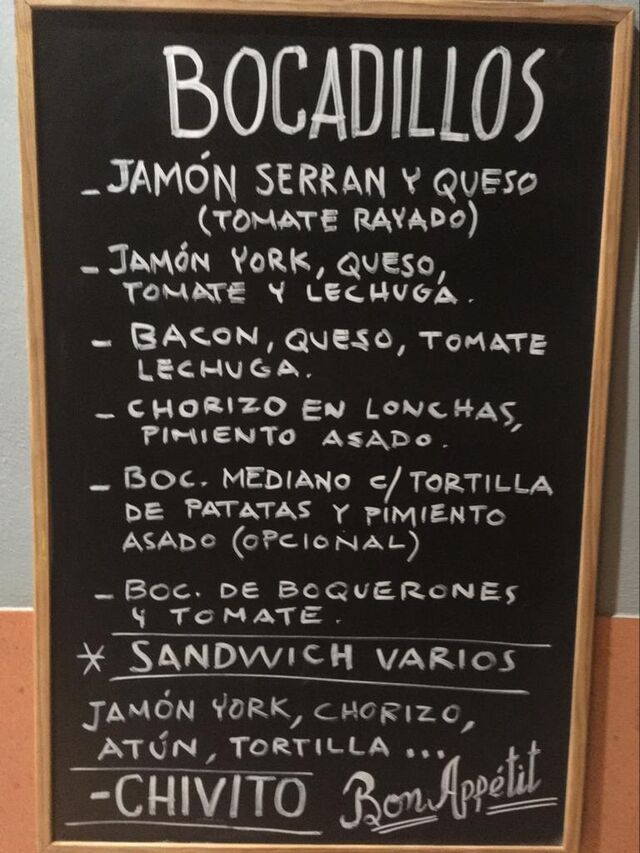 BOCADILLOS
- JAMÓN SERRAN Y QUESO
(TOMATE RAYADO)
- JAMÓN YORK, QUESO,
TOMATE Y LECHUGA.
- BACON, QUESO, TOMATE
LECHUGA.
- CHORIZO EN LONCHAS,
PIMIENTO ASADO.
- BOC. MEDIANO c/ TORTILLA
DE PATATAS Y PIMIENTO
ASADO (OPCIONAL)
- BOC. DE BOQUERONES
Y TOMATE.
* SANDWICH VARIOS
JAMÓN YORK, CHORIZO,
ATÚN, TORTILLA ...
- CHIVITO Bon Appétit